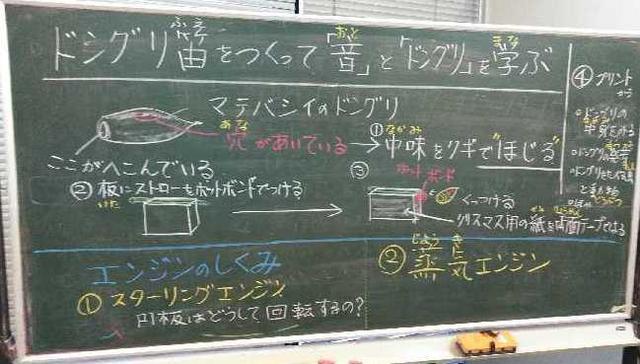 ドングリ笛をつくって「音」と「ドングリ」を学ぶ
ふえ
おと
まな
マテバシイのドングリ
あな
穴があいている
ここがへこんでいる
①
なかみ
中味をクギで"ほじる"
② 板にストローをホットボンドでつける
いた
③
ホットボンド
くっつける
クリスマス用の紙を両面テープではる
④ プリント
から
エンジンのしくみ
① スターリングエンジン
円板はどうして回転するの?
② 蒸気エンジン
じょう き